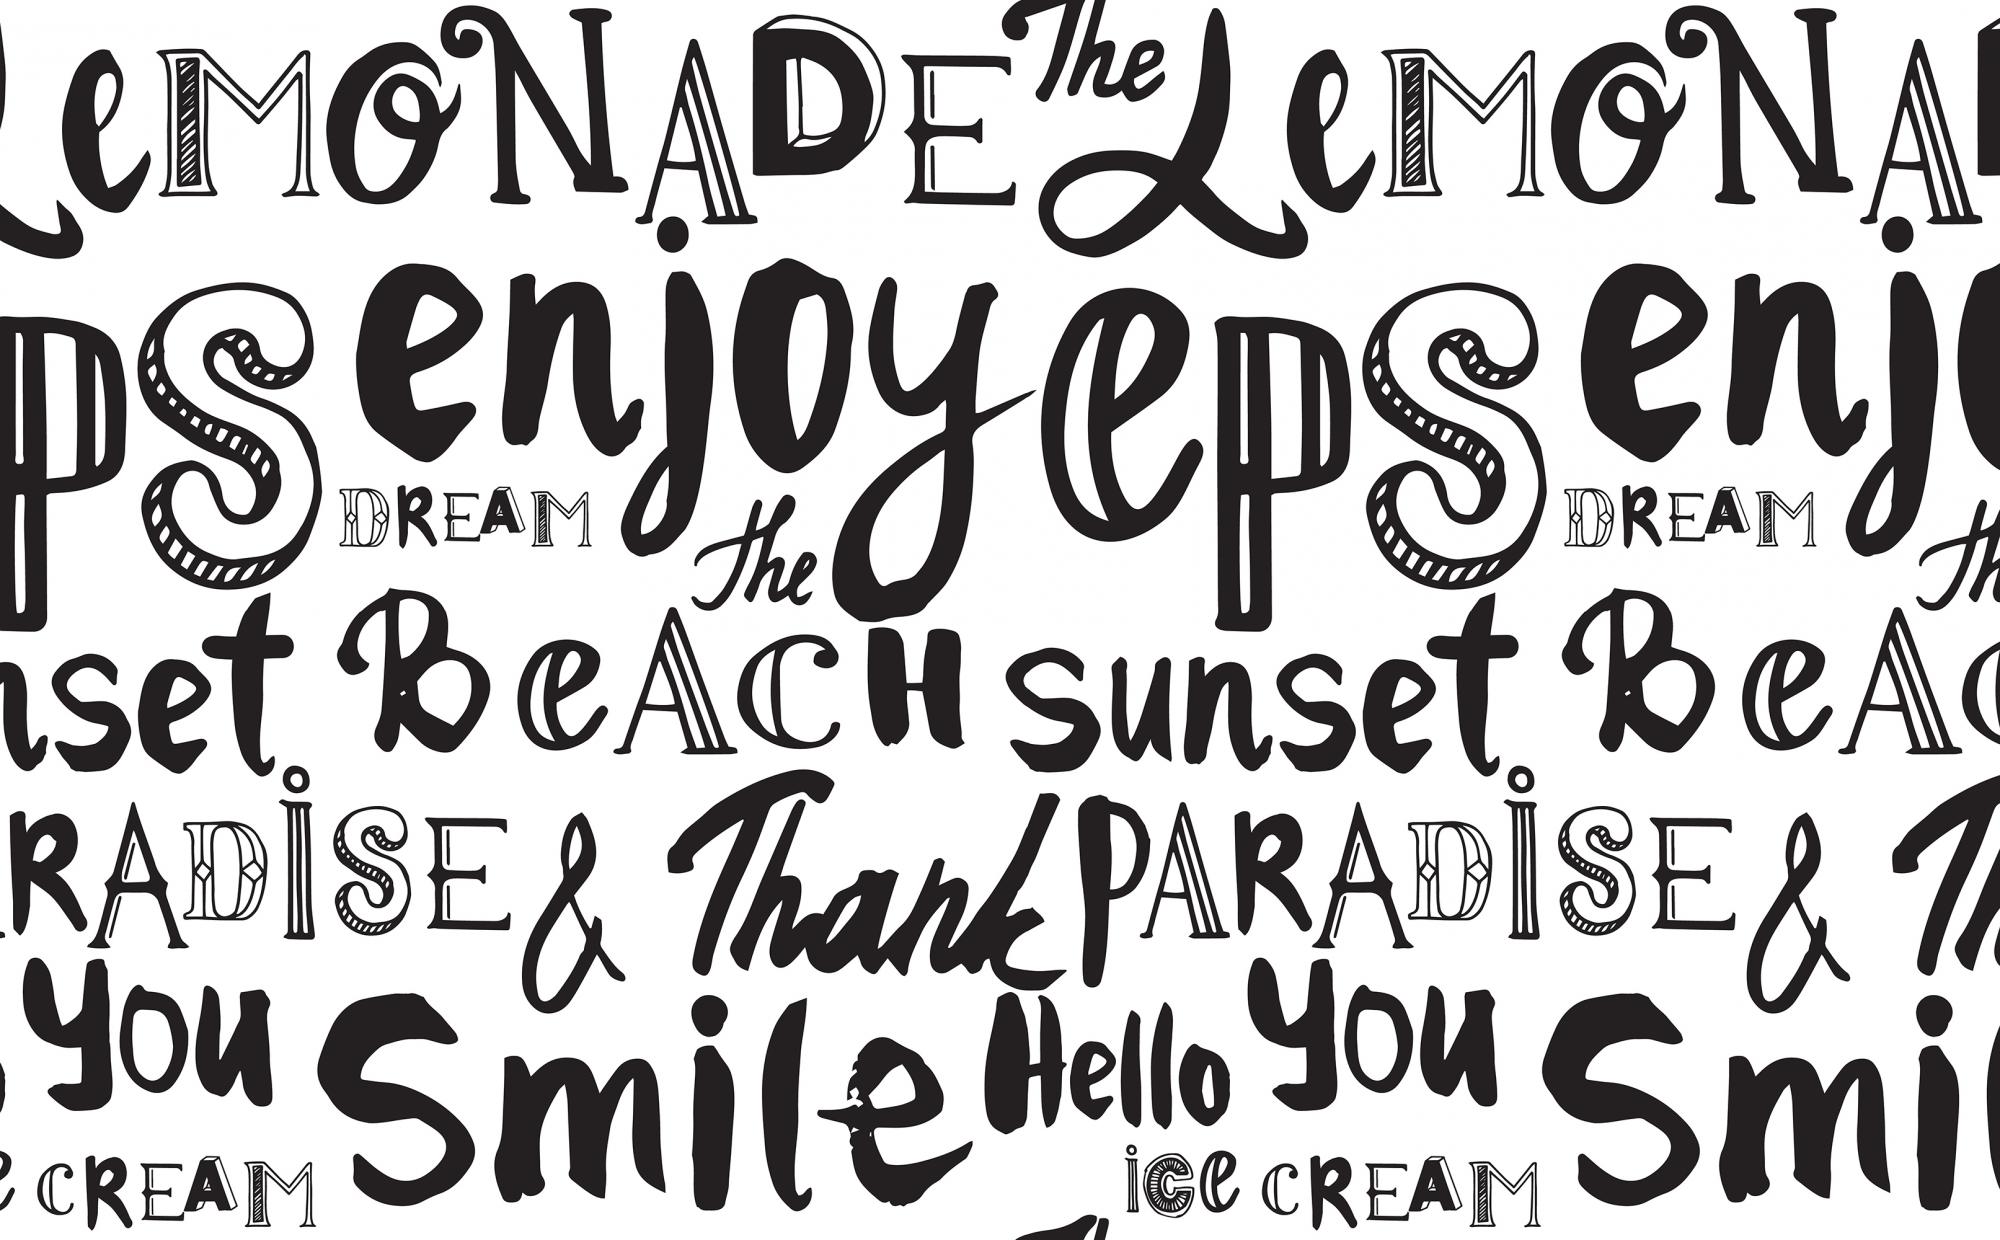 LeMONADE The LeMONAD
PS enjoy ePS enjo
DREAM the DREAM th
nset BeACH sunset BeAC
RADiSE & Thank PARADiSE & Th
You Smile Hello You Smil
e CREAM iCe CREAM